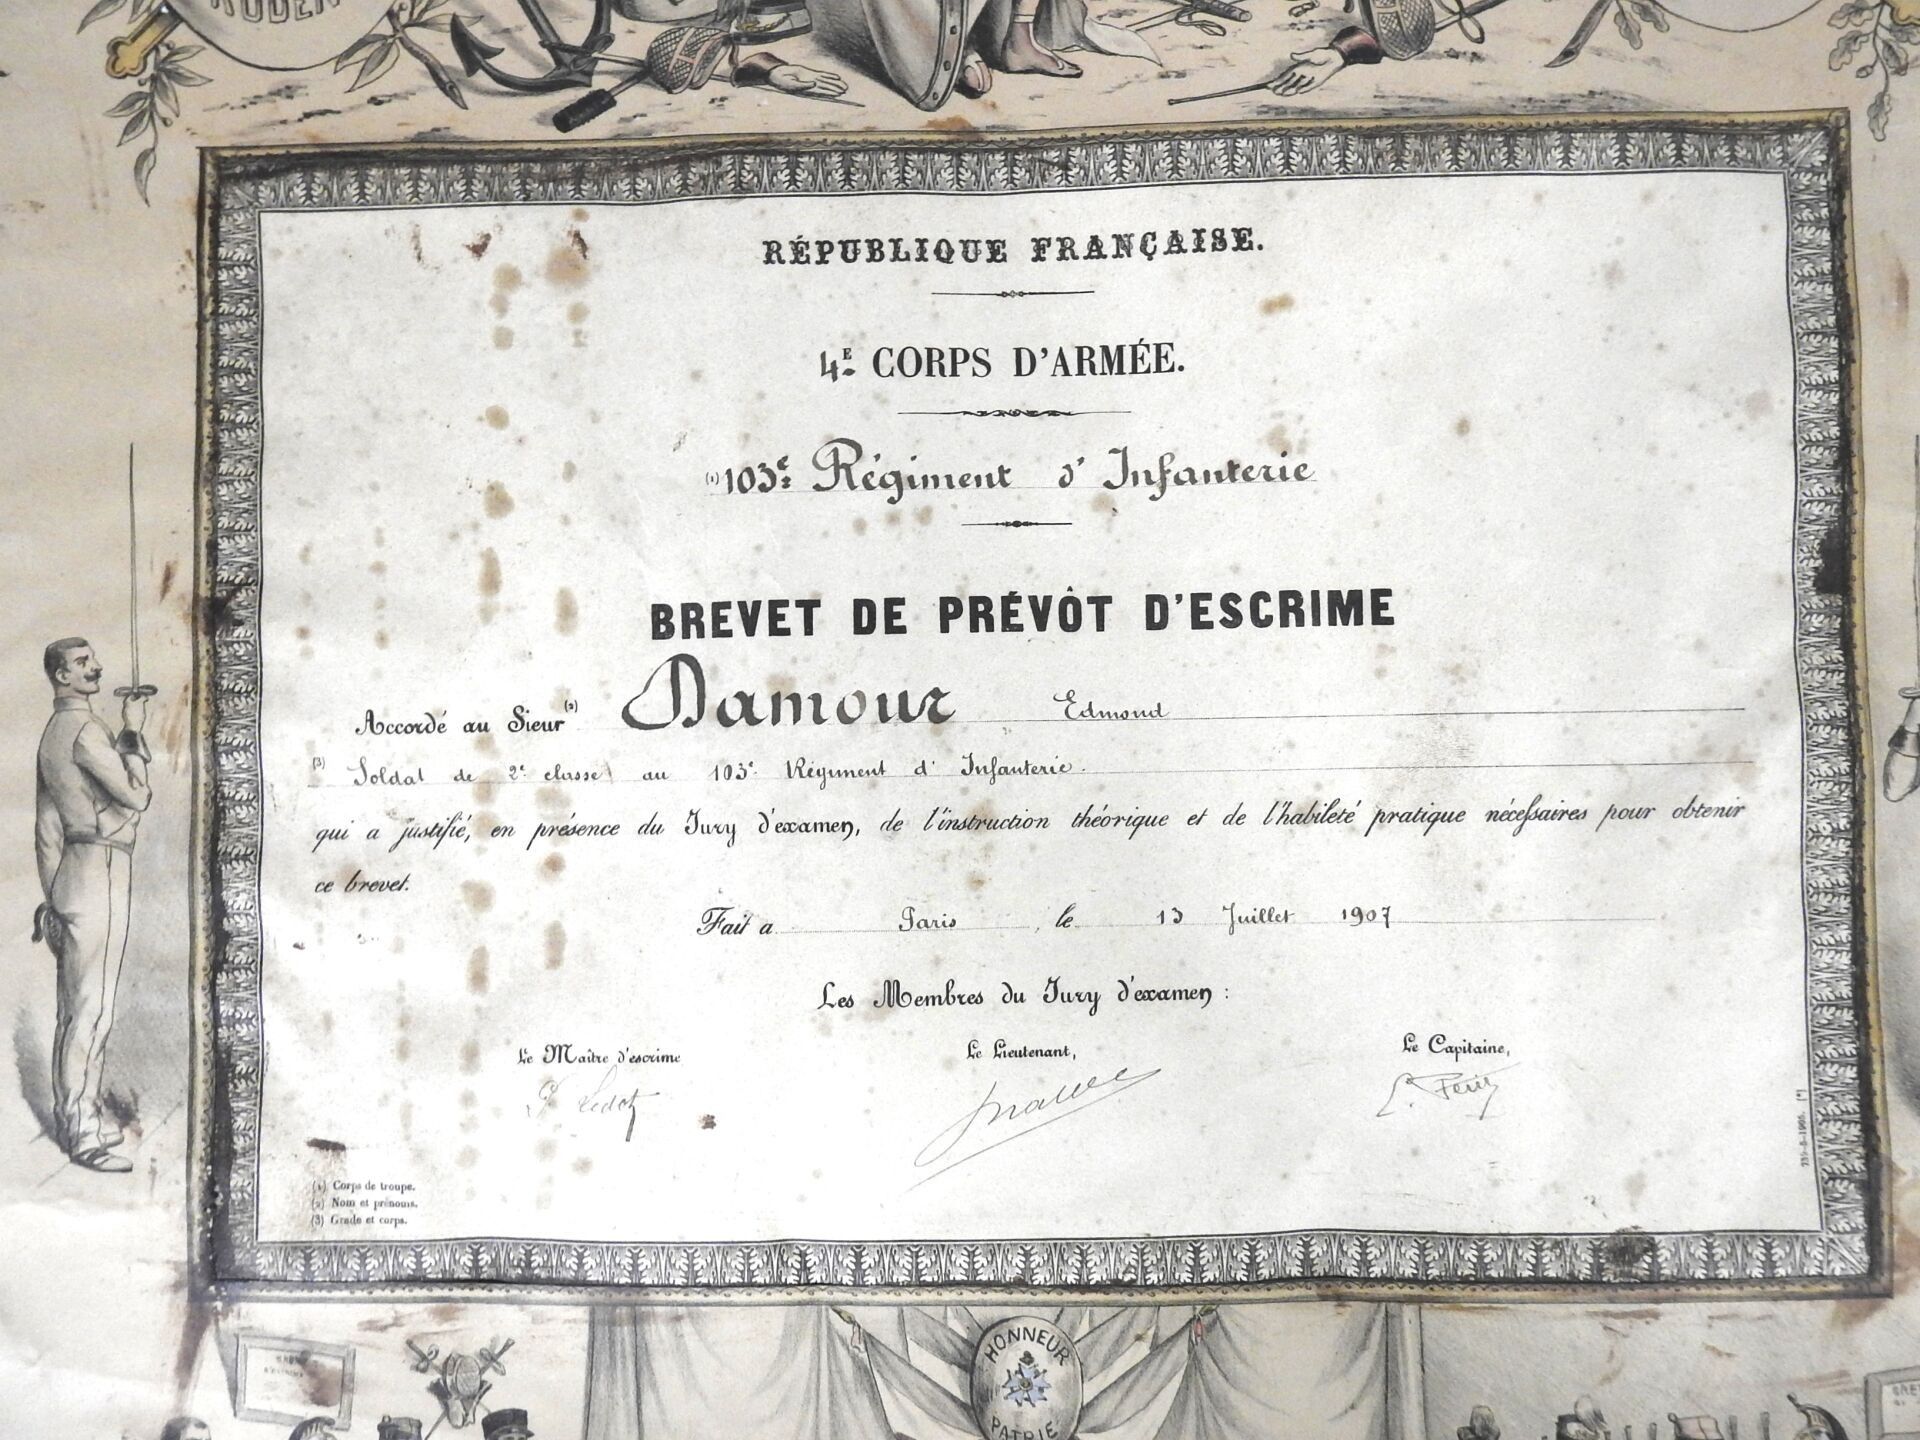 RÉPUBLIQUE FRANÇAISE.
4E CORPS D'ARMÉE.
(1) 103e Régiment d'Infanterie
BREVET DE PRÉVÔT D'ESCRIME
Accordé au Sieur (2) Damour Edmond
(3) Soldat de 2e classe au 103e Régiment d'Infanterie.
qui a justifié, en présence du Jury d'examen, de l'instruction théorique et de l'habileté pratique nécessaires pour obtenir
ce brevet.
Fait a Paris, le 13 Juillet 1907
Les Membres du Jury d'examen :
Le Maître d'escrime
Le Lieutenant,
Le Capitaine,
(1) Corps de troupe.
(2) Nom et prénoms.
(3) Grade et corps.
HONNEUR
PATRIE